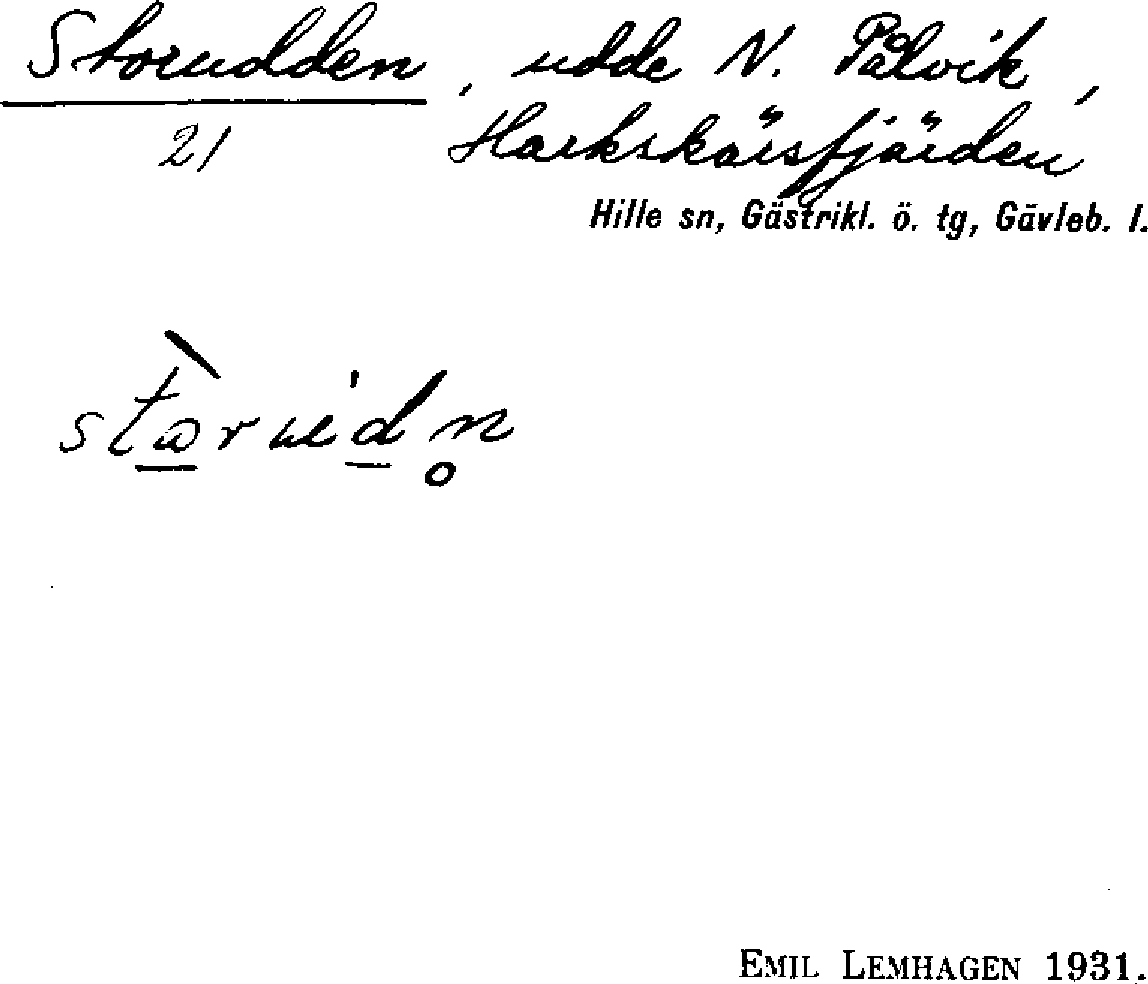 Storudden, udde N. Pålvik,
21 Harkskärsfjärden
Hille sn, Gästrikl. ö. tg, Gävleb. l.
EMIL LEMHAGEN 1931.